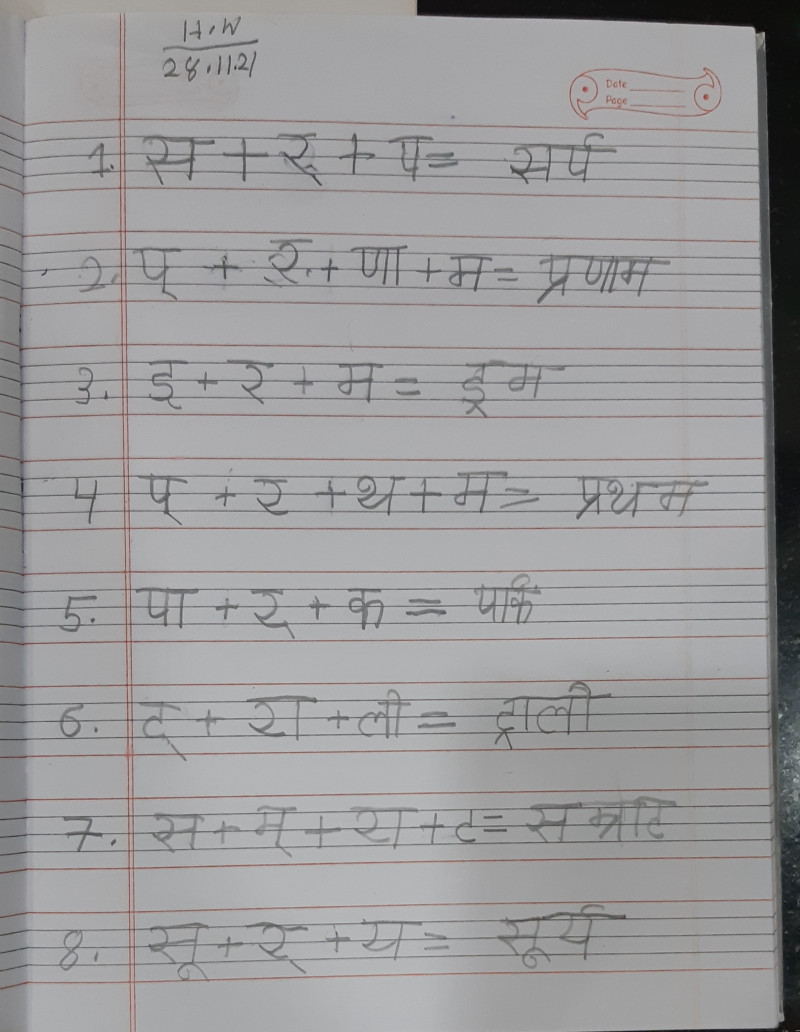 H.W
28.11.21
Date
Page
1. स + र् + प = सर्प
2. प् + र + णा + म = प्रणाम
3. ड् + र + म = ड्रम
4 प् + र + थ + म = प्रथम
5. पा + र् + क = पार्क
6. ट् + रा + ली = ट्राली
7. स + म् + रा + ट = सम्राट
8. सू + र् + य = सूर्य